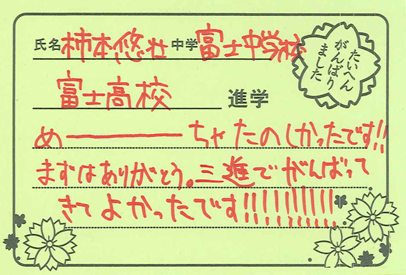 氏名 柿本悠壮 中学 富士中学校
たいへん
がんばり
ました
富士高校 進学
め――――ちゃたのしかったです!!
まずはありがとう。三進でがんばって
きてよかったです!!!!!!!!!!